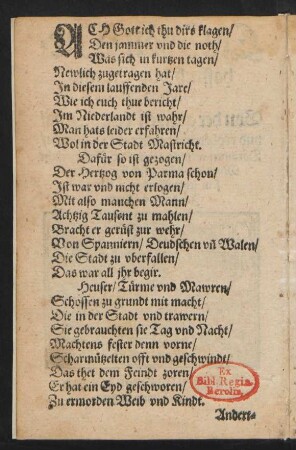 ACH Gott ich thu dirs klagen/
Den jammer vnd die noth/
Was sich in kurtzen tagen/
Newlich zugetragen hat/
In diesem lauffenden Jare/
Wie ich euch thue bericht/
Im Niederlandt ist wahr/
Man hats leider erfahren/
Wol in der Stadt Mastricht.
Dafür so ist gezogen/
Der Hertzog von Parma schon/
Ist war vnd nicht erlogen/
Mit also manchen Mann/
Achtzig Tausent zu mahlen/
Bracht er gerüst zur wehr/
Von Spanniern/ Deudschen vñ Walen/
Die Stadt zu vberfallen/
Das war all jhr begir.
Heuser/ Türme vnd Mawren/
Schossen zu grundt mit macht/
Die in der Stadt vnd trawern/
Sie gebrauchten sie Tag vnd Nacht/
Machtens fester denn vorne/
Scharmützelten offt vnd geschwindt/
Das thet dem Feindt zoren/
Er hat ein Eyd geschworen/
Zu ermorden Weib vnd Kindt.
Andert-
Ex
Bibl. Regia
Berolin.